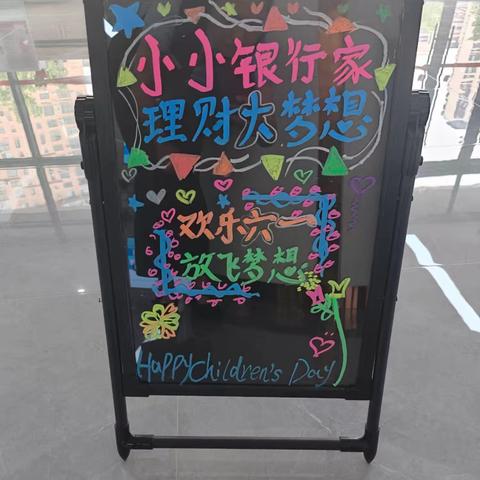 小小银行家
理财大梦想
欢乐六一
放飞梦想
Happy Children's Day